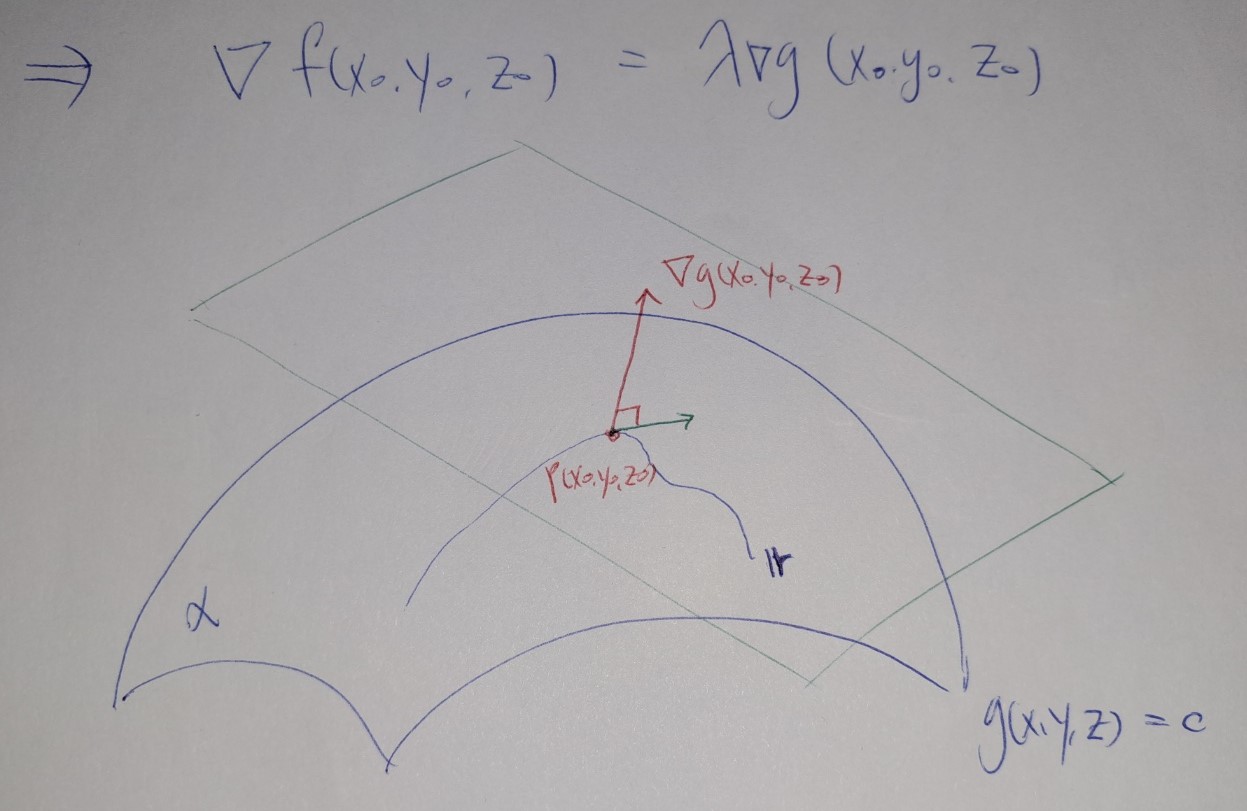 ⇒ ∇f(x₀,y₀,z₀) = λ∇g(x₀,y₀,z₀)
∇g(x₀,y₀,z₀)
P(x₀,y₀,z₀)
r
α
g(x,y,z) = c